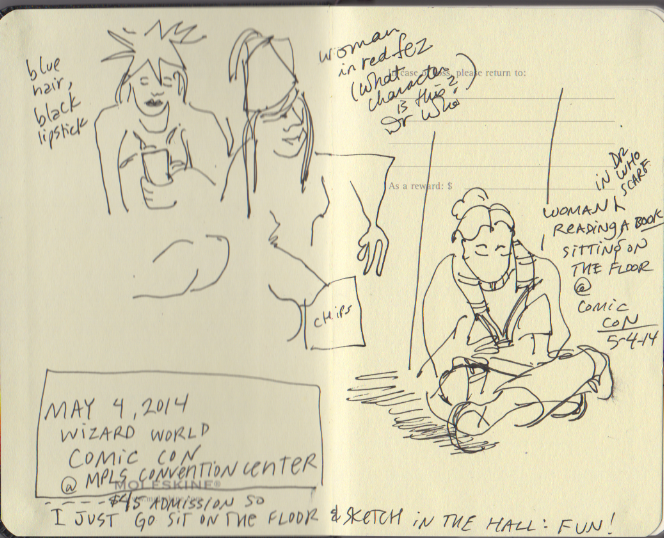 blue
hair,
black
lipstick
woman
in red fez
(what
character
is this?)
Dr Who
please return to:
As a reward: $
IN DR
WHO
SCARF
WOMAN
READING A BOOK
SITTING ON
THE FLOOR
@
COMIC
CON
5-4-14
CHIPS
MAY 4, 2014
WIZARD WORLD
COMIC CON
@ MPLS CONVENTION CENTER
MOLESKINE®
$45 ADMISSION SO
I JUST GO SIT ON THE FLOOR & SKETCH IN THE HALL: FUN!